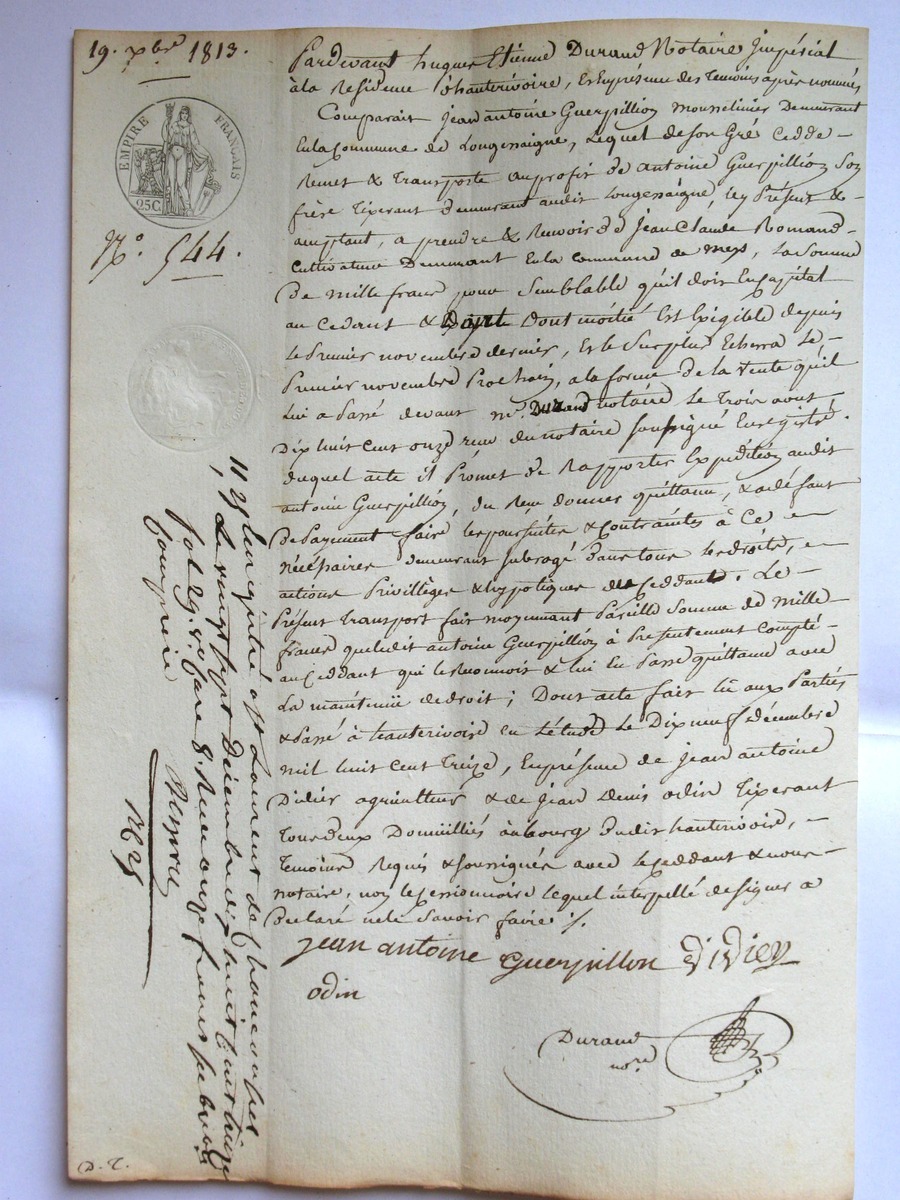 19. xbre 1813.
EMPIRE FRANÇAIS
25C
N.o 544.
Pardevant hugues Etienne Durand Notaire Jmpérial
à la Residence d'hauterivoire, En présence des temoins après nommés
Comparait jean antoine Guerpillion Mousselinier Demeurant
En la Commune de Longessaigne, Lequel de son Gré Cedde
Remet & transporte au profit de antoine Guerpillion son
frère tixerant demeurant audit Longessaigne, icy Présent &
acceptant, a prendre & Recevoir de Jean Claude Romand
Cultivateur Demeurant En la commune de meys, La Somme
De mille francs pour Semblable qu'il doit En capital
au Cedant & Dont moitié Est Exigible depuis
Le Premier novembre dernier, Et le Surplus Echerra Le
Premier novembre Prochain, a la forme de la Vente qu'il
Lui a Passé devant me. Durand notaire Le trois aout
Dix huit cent onze reçu du notaire soussigné Enregistré.
duquel acte il Promet de Rapporter Expédition audit
antoine Guerpillion, du Reçu donner quittance, & a défaut
De Payement faire les poursuites & Contraintes à Ce
nécéssaires demeurant subrogé dans tous les droits,
actions Privillèges & hypotèques du Ceddant. Le
Présent transport fait moyennant Pareille Somme de Mille
francs que ledit antoine Guerpillion à Présentement Compté
au Ceddant qui le Reconnoit & lui En Passe quittance avec
La maintenüe de droit; Dont acte fait lû aux Parties
& Passé à hauterivoire En L'étude Le Dix neuf décembre
mil huit Cent treize, En présence de Jean antoine
Didier agriculteur & de Jean Denis odin tixerant
tous deux Domiciliés au bourg dudit hauterivoire,
temoins Requis & soussignés avec le Ceddant & nous
notaire, non le Cessionnaire lequel interpellé de signer a
Declaré ne le Savoir faire ./.
jean antoine Guerpillon Didier
odin
Durand
nore
11 25 Enregistré à St Laurent de Chamousset
Le vingt sept Décembre dix huit Cent treize
fol 29 v. Case 8. Reçu onze francs
compris
1125
D. T.